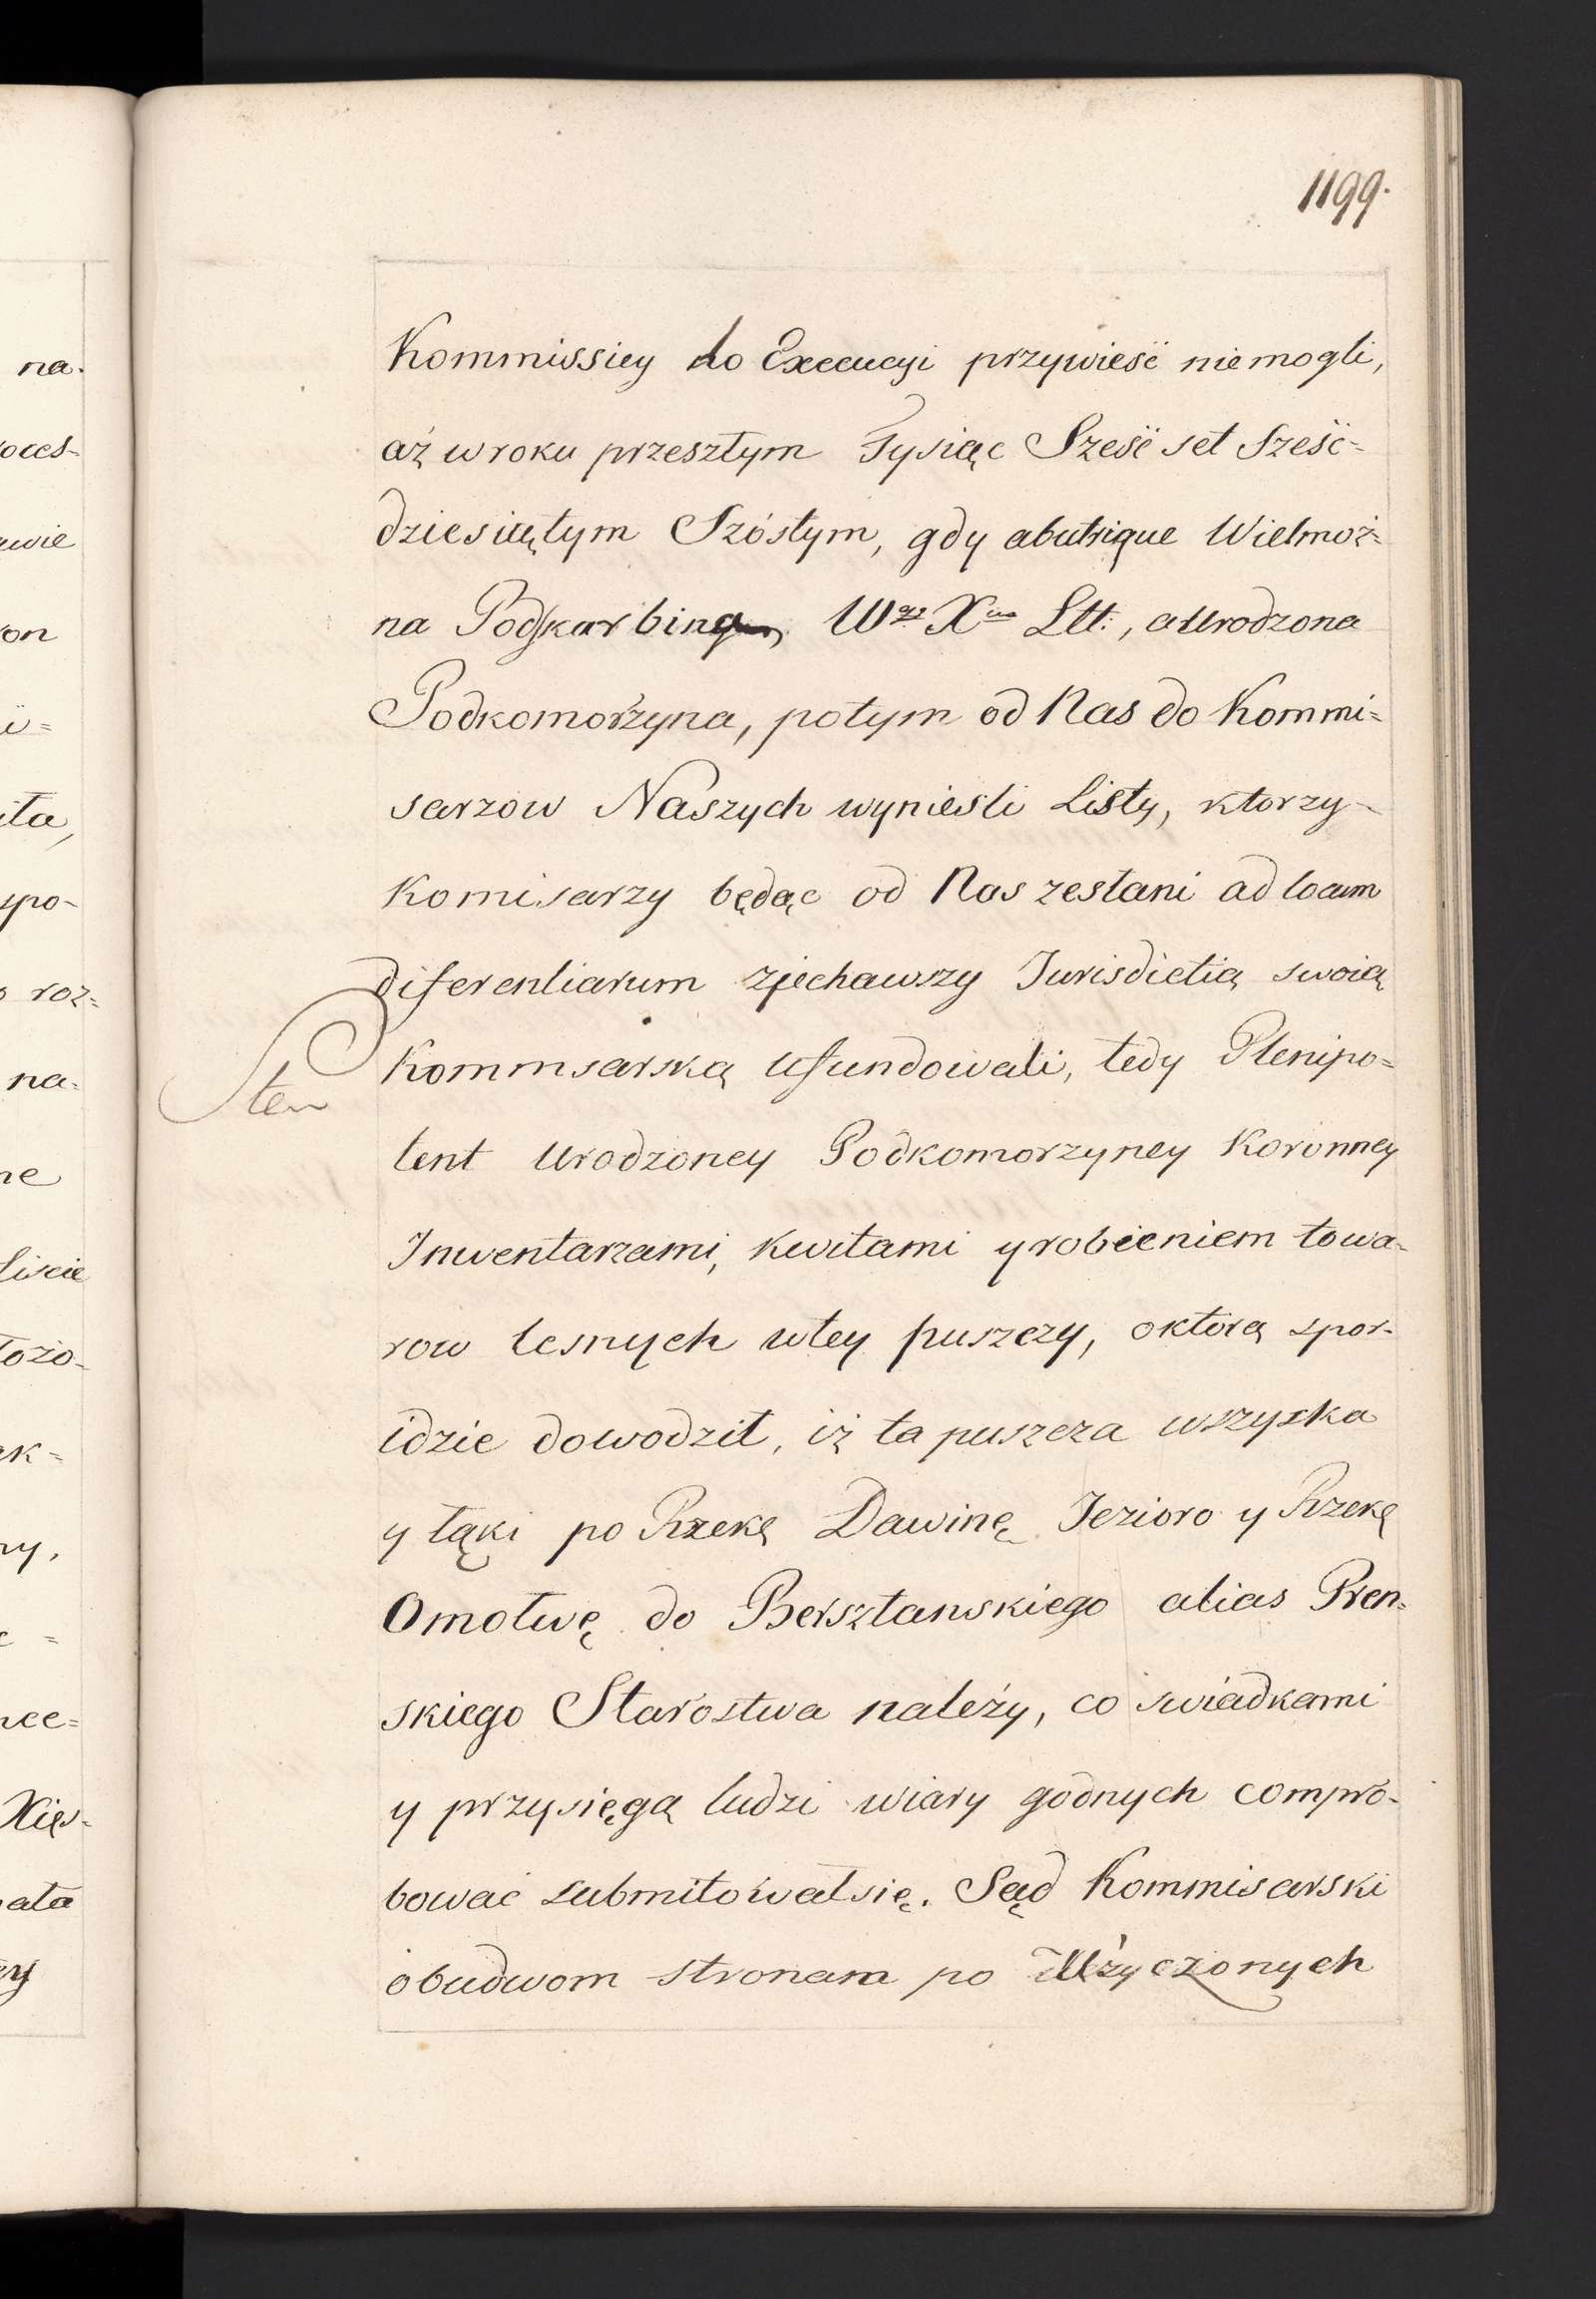 1199.
Kommissiey do Execucyi przywieść nie mogli,
aż w roku przeszłym Tysiąc Sześć set Sześć=
dziesiątym Szóstym, gdy abutrique Wielmoż=
na Podskarbina, W.go X.wa Ltt:, a Urodzona
Podkomorzyna, potym od Nas do Kommi=
sarzow Naszych wyniesli Listy, ktorzy
Komisarzy będąc od Nas zesłani ad locum
diferentiarum zjechawszy Jurisdictią swoią
Kommsarską ufundowali, tedy Plenipo=
Sten
tent Urodzoney Podkomorzyney Koronney
Inwentarzami, kwitami y robieniem towa-
row lesnych w tey puszczy, o ktorą spor-
idzie dowodził, iż ta puszcza wszyska
y łąki po Rzekę Dawinę Jezioro y Rzekę
Omotwę do Bersztanskiego alias Pren-
skiego Starostwa należy, co swiadkami
y przysięgą ludzi wiary godnych compro-
bować submitował się. Sąd Kommisarski
obudwom stronam po Użyczonych
na.
oces-
awie
ron
i=
iła,
spo-
o roz=
na=
ne
Liscie
łożo-
ak=
ny,
c =
nce=
Xięs-
ata
ey